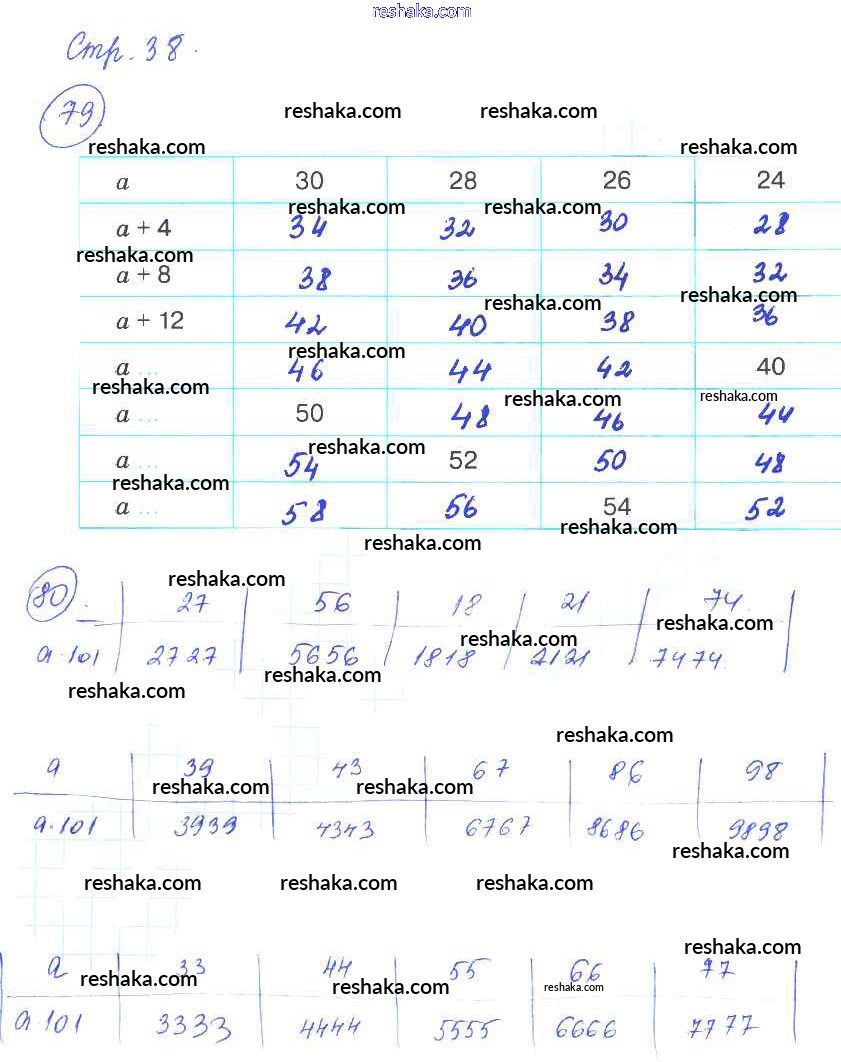 reshaka.com
Стр. 38.
79
reshaka.com reshaka.com
reshaka.com reshaka.com
a 30 28 26 24
reshaka.com reshaka.com
a + 4 34 32 30 28
reshaka.com
a + 8 38 36 34 32
reshaka.com reshaka.com
a + 12 42 40 38 36
reshaka.com
a ... 46 44 42 40
reshaka.com reshaka.com reshaka.com
a ... 50 48 46 44
reshaka.com
a ... 54 52 50 48
reshaka.com
a ... 58 56 54 52
reshaka.com
reshaka.com
reshaka.com
80. 27 56 18 21 74
reshaka.com reshaka.com
a·101 2727 5656 1818 2121 7474
reshaka.com reshaka.com
reshaka.com
a 39 43 67 86 98
reshaka.com reshaka.com
a·101 3939 4343 6767 8686 9898
reshaka.com
reshaka.com reshaka.com reshaka.com
reshaka.com
a 33 44 55 66 77
reshaka.com reshaka.com reshaka.com
a·101 3333 4444 5555 6666 7777